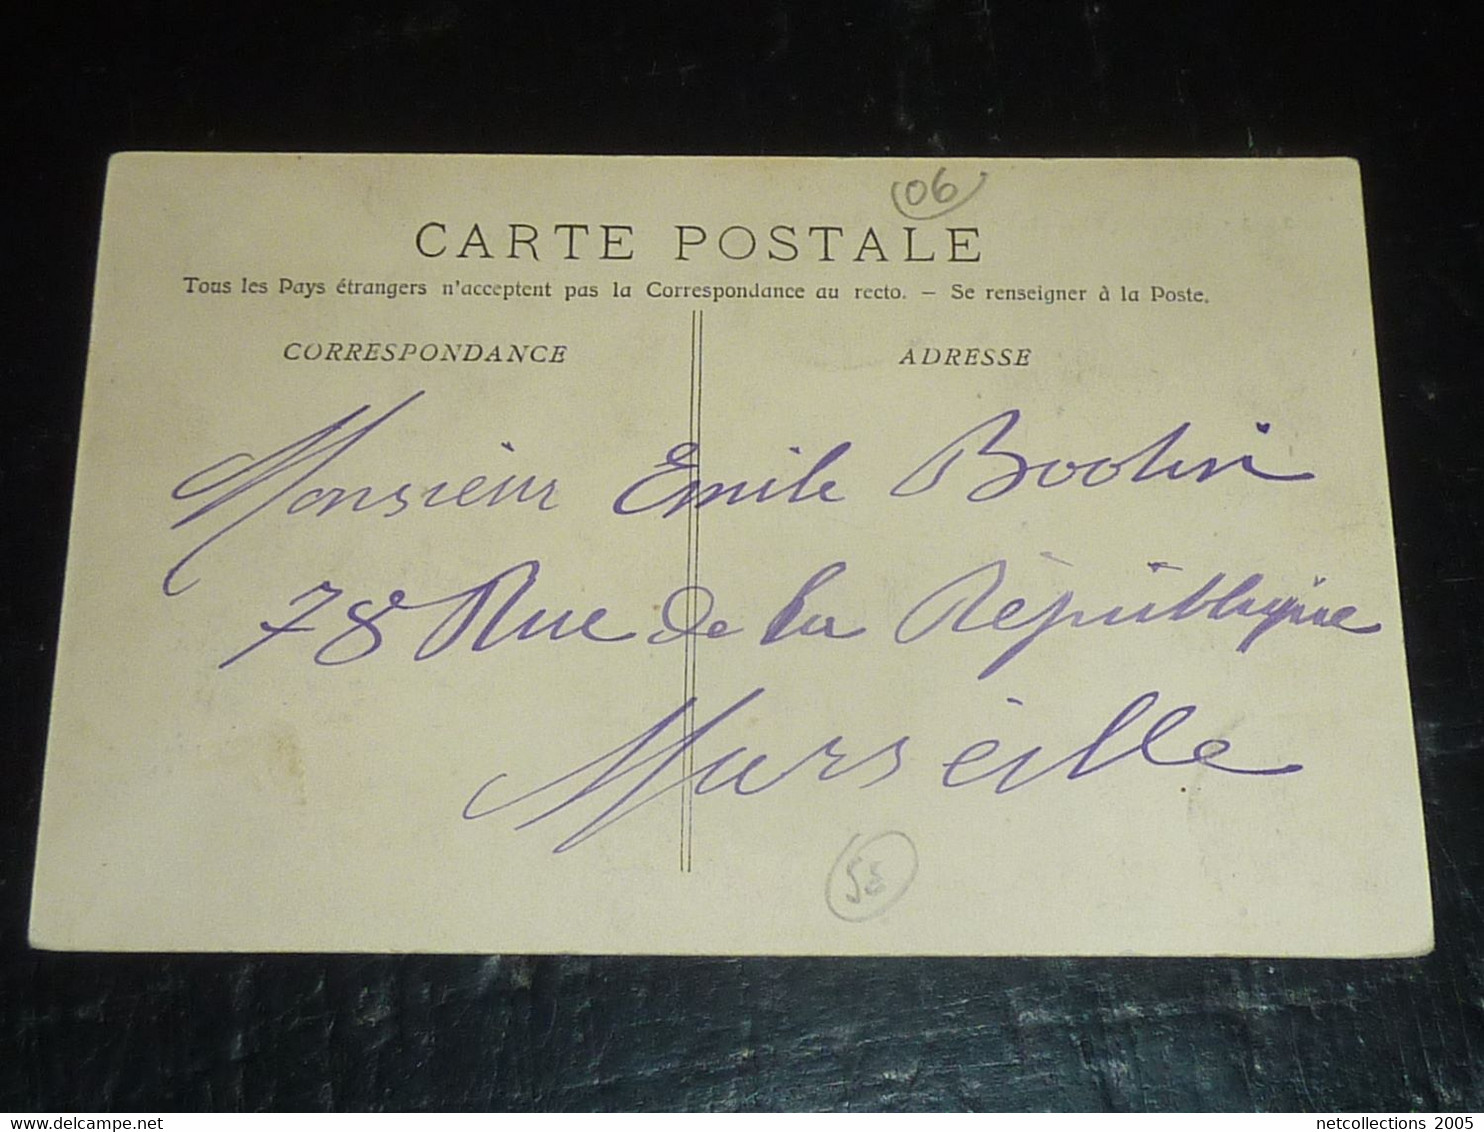 06
CARTE POSTALE
Tous les Pays étrangers n'acceptent pas la Correspondance au recto. — Se renseigner à la Poste.
CORRESPONDANCE
ADRESSE
Monsieur Emile
78 Rue de la République
Marseille
netcollections 2005